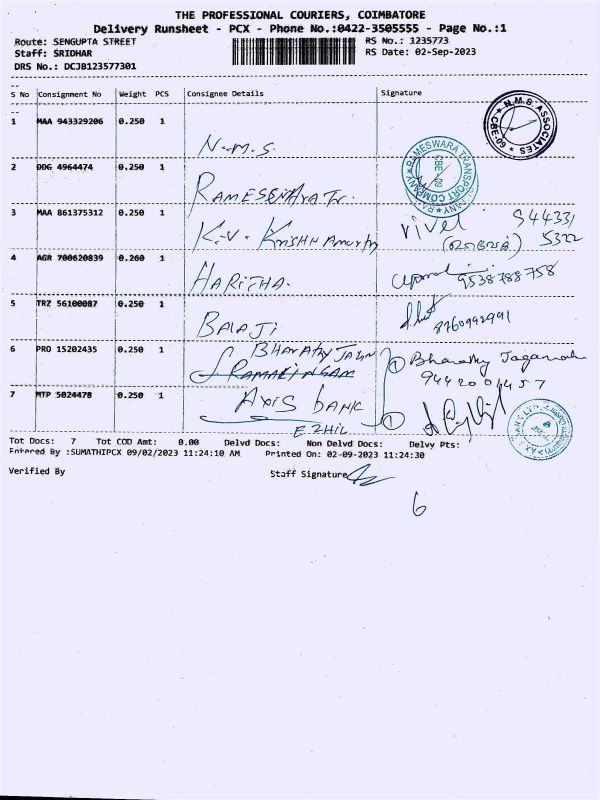 THE PROFESSIONAL COURIERS, COIMBATORE
Delivery Runsheet - PCX - Phone No.:0422-3505555 - Page No.:1
Route: SENGUPTA STREET
RS No.: 1235773
Staff: SRIDHAR
RS Date: 02-Sep-2023
DRS No.: DCJB123577301
S No Consignment No Weight PCS Consignee Details Signature
1 MAA 943329206 0.250 1 N.M.S.
N.M.S ASSOCIATES CBE-09
2 DDG 4964474 0.250 1
RAMESWARA TRANSPORT COMPANY CBE 09
3 MAA 861375312 0.250 1 K.V. Krishnamurthy
94433 5322
4 AGR 700620839 0.260 1 HARITHA.
9538788758
5 TRZ 56100087 0.250 1 BALAJI
8760992991
6 PRO 15202435 0.250 1 BHARATHY JAGAN
RAMALINGAM
1 Bharathy Jagannath
9442001457
7 MTP 5024478 0.250 1 AXIS BANK
EZHIL
1
Tot Docs: 7 Tot COD Amt: 0.00 Delvd Docs: Non Delvd Docs: Delvy Pts:
Entered By :SUMATHIPCX 09/02/2023 11:24:10 AM Printed On: 02-09-2023 11:24:30
Verified By Staff Signature
6